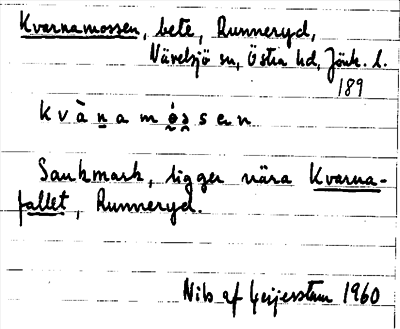 Kvarnamossen, bete, Runneryd,
Nävelsjö sn, Östra hd, Jönk. l.
189
k v à n a m ó s s e n
Sankmark, ligger nära Kvarna-
fallet, Runneryd.
Nils af Geijerstam 1960